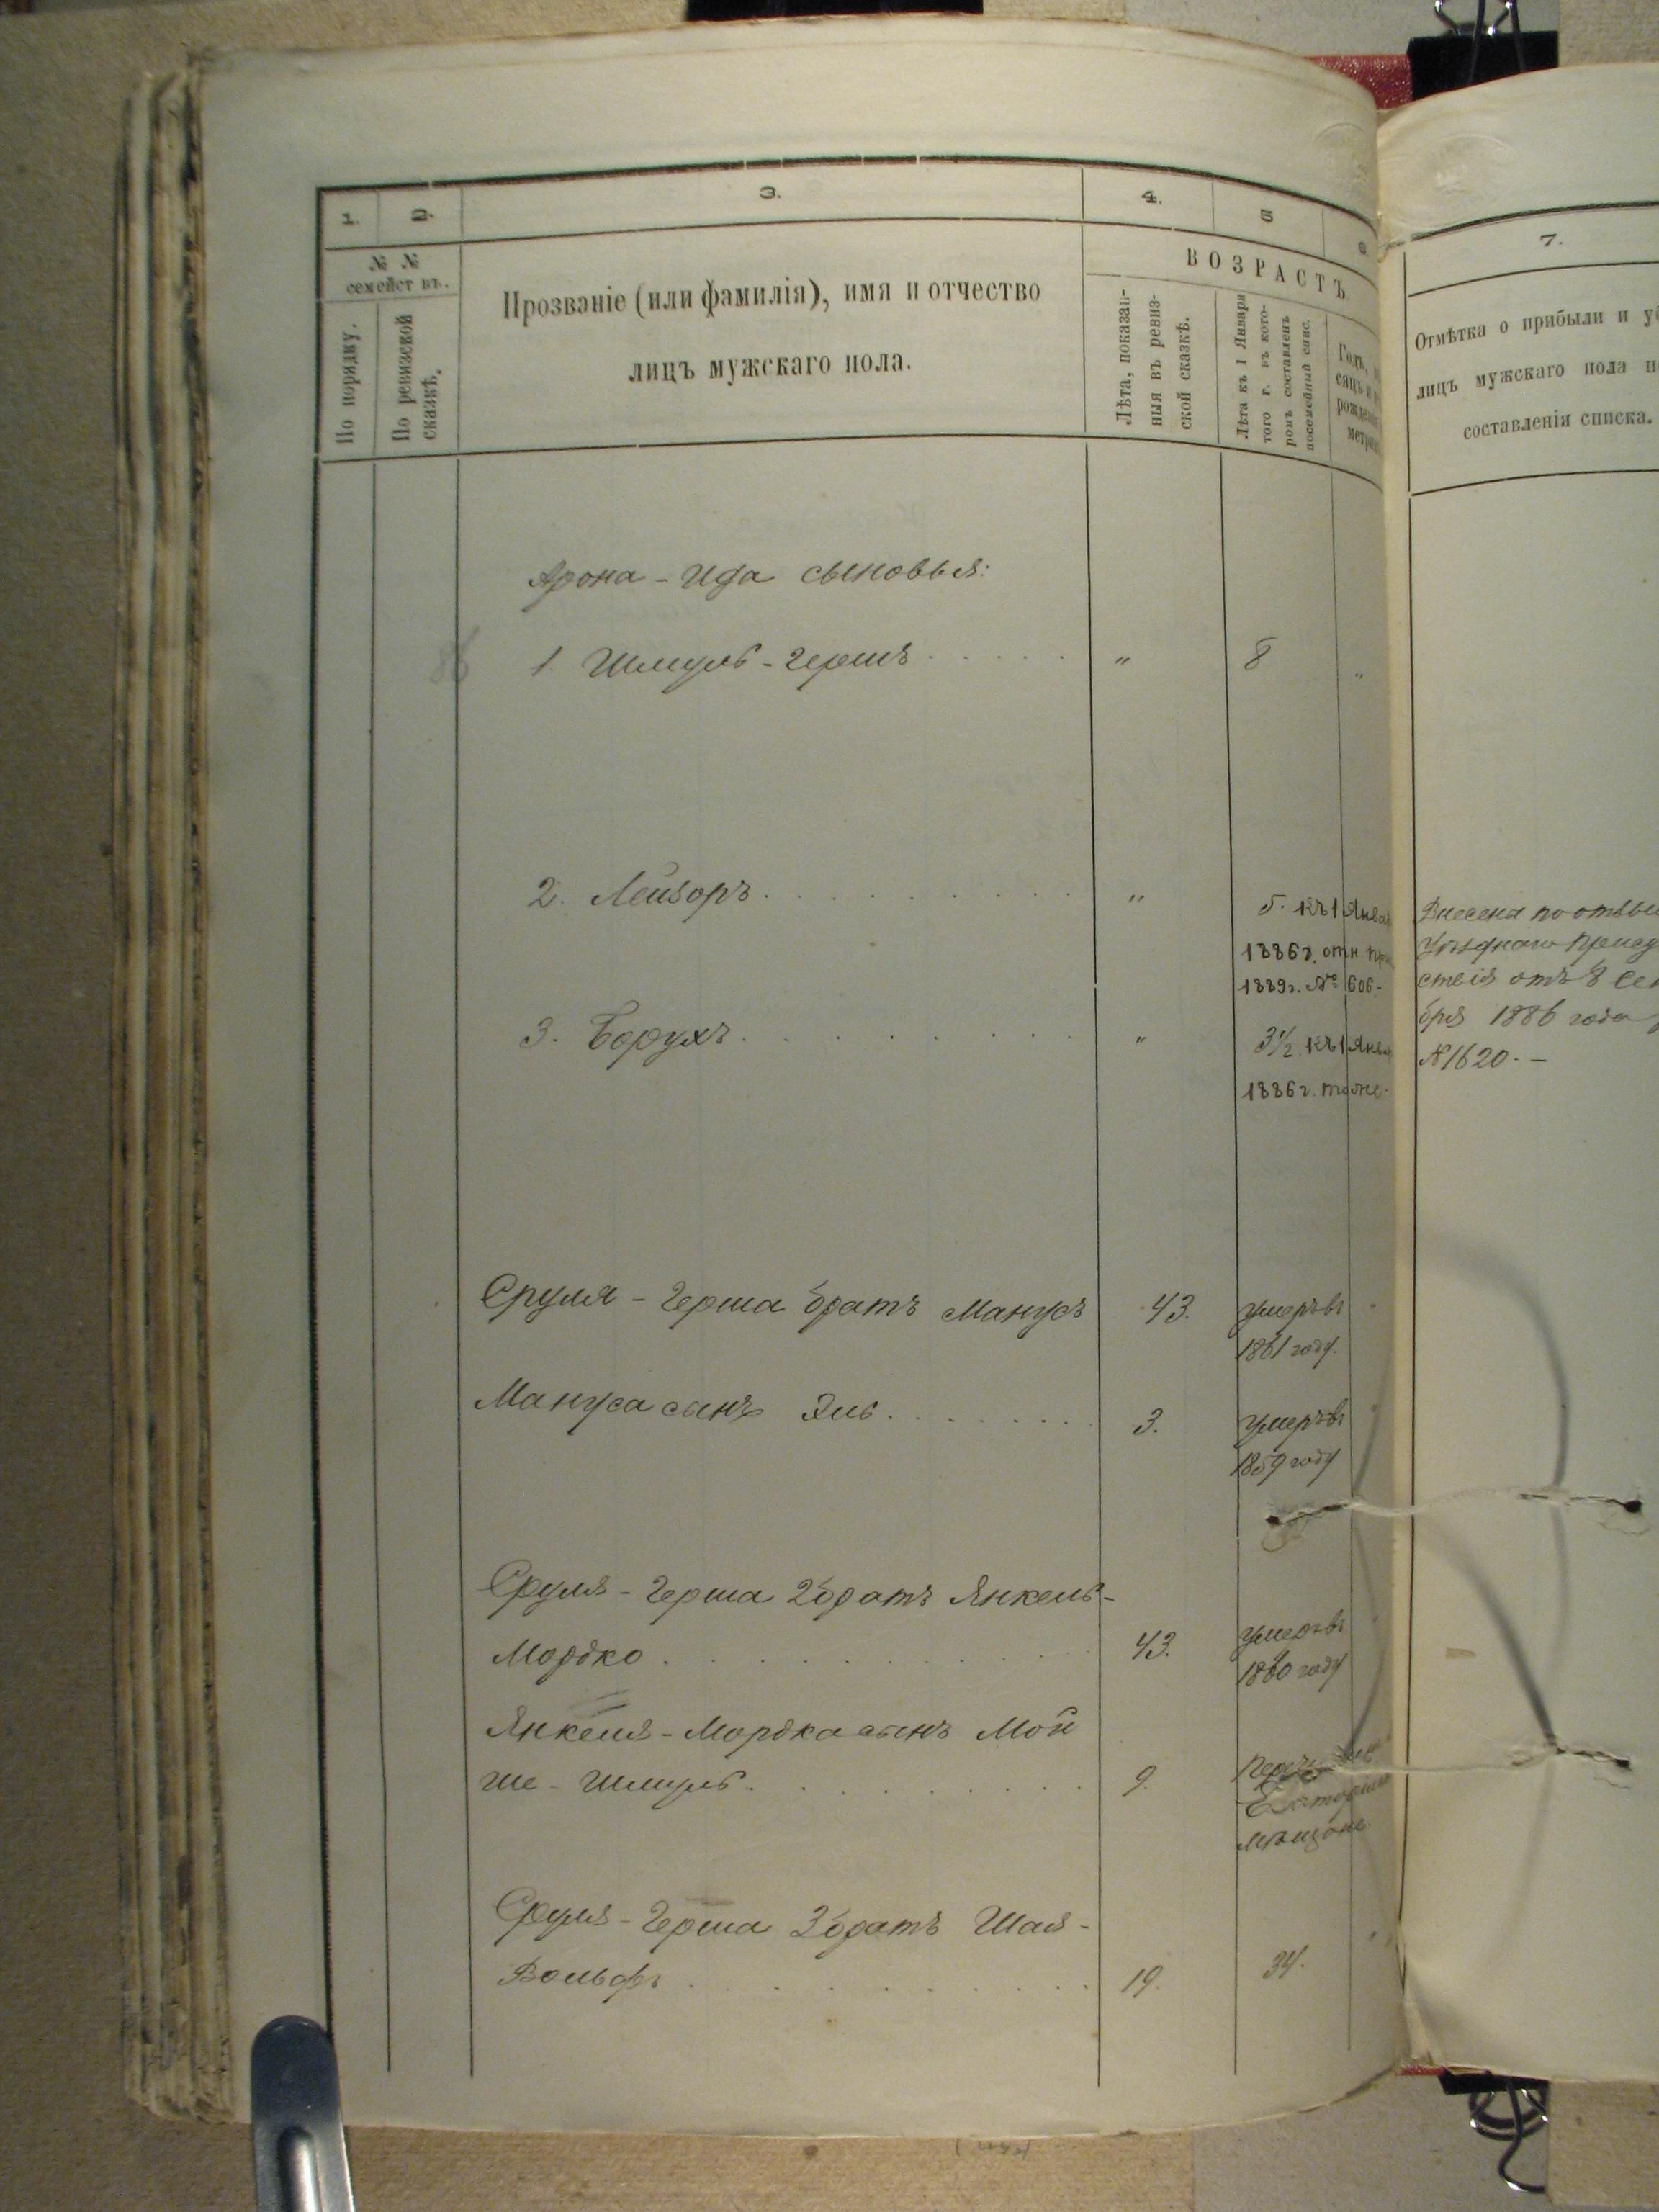 1.
2.
3.
4.
5
6
7.
№ №
семействъ.
По порядку.
По ревизской
сказкѣ.
Прозваніе (или фамилія), имя и отчество
лицъ мужскаго пола.
ВОЗРАСТЪ
Лѣта, показан-
ныя въ ревиз-
ской сказкѣ.
Лѣта къ 1 Января
того г. въ кото-
ромъ составленъ
посемейный спис.
Годъ,
рожден
метри
Отмѣтка о прибыли и
лицъ мужскаго пола
составленія списка.
Арона-Ида сыновья:
86
1. Шмуль-Гершъ . . . . . " 8 "
2. Лейзоръ . . . . . . . . " 5. къ 1 Янва
1886г. отн. пр
1889г. № 606.
3. Борухъ . . . . . . . . " 3½ къ 1 Янв
1886г. тоже
Внесена по отзы
Уѣзднаго Присут
ствія отъ 8 Сен
бря 1886 года
№1620.—
Сруля-Герша братъ Манусъ 43. умеръ въ
1861 году.
Мануса сынъ Эль . . . . . . . 3. умеръ въ
1859 году
Сруля-Герша 2 братъ Янкель-
Мордко . . . . . . . . . . . 43. умеръ въ
1860 году
Янкеля-Мордка сынъ Мой
ше-Шмуль . . . . . . . . . 9.
мѣщане
Сруля-Герша 3 братъ Шая-
Вольфъ . . . . . . . . . . 19. 34.